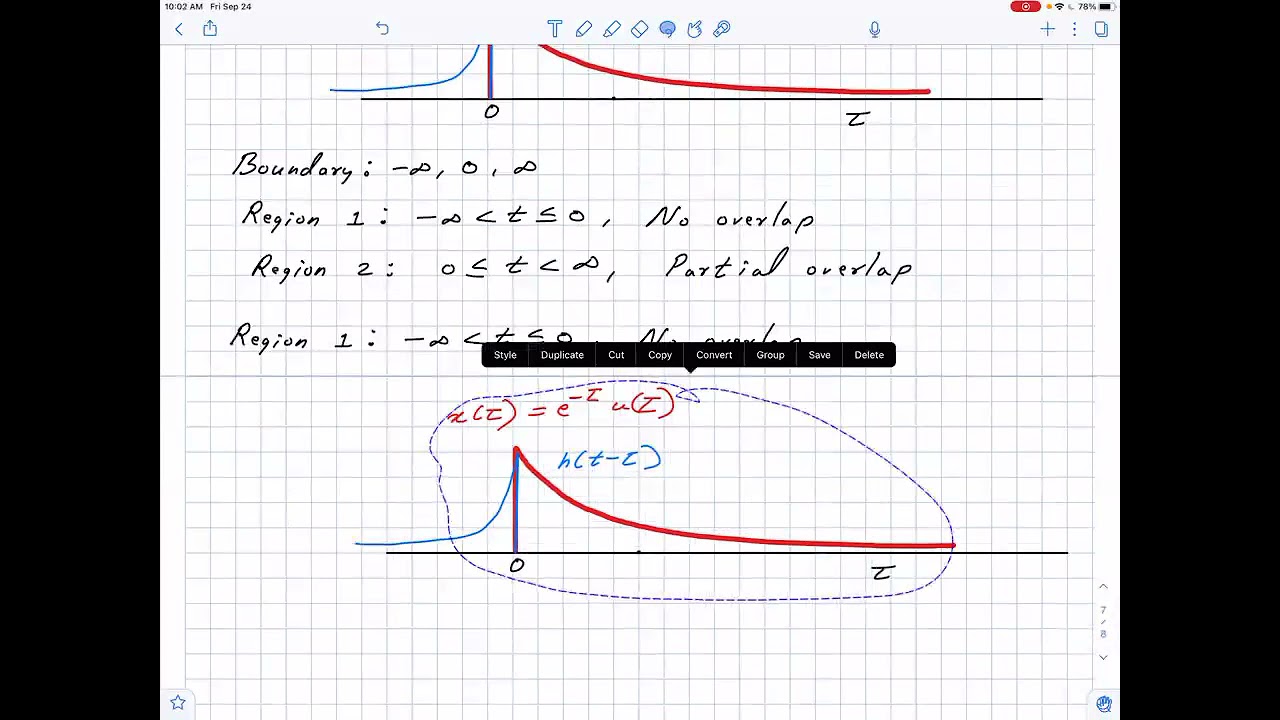 10:02 AM Fri Sep 24
78%
0
τ
Boundary: -∞, 0, ∞
Region 1: -∞ < t ≤ 0, No overlap
Region 2: 0 ≤ t < ∞, Partial overlap
Region 1: -∞ < t ≤ 0, No overlap
Style Duplicate Cut Copy Convert Group Save Delete
x(τ) = e^{-τ} u(τ)
h(t-τ)
0
τ
7
/
8